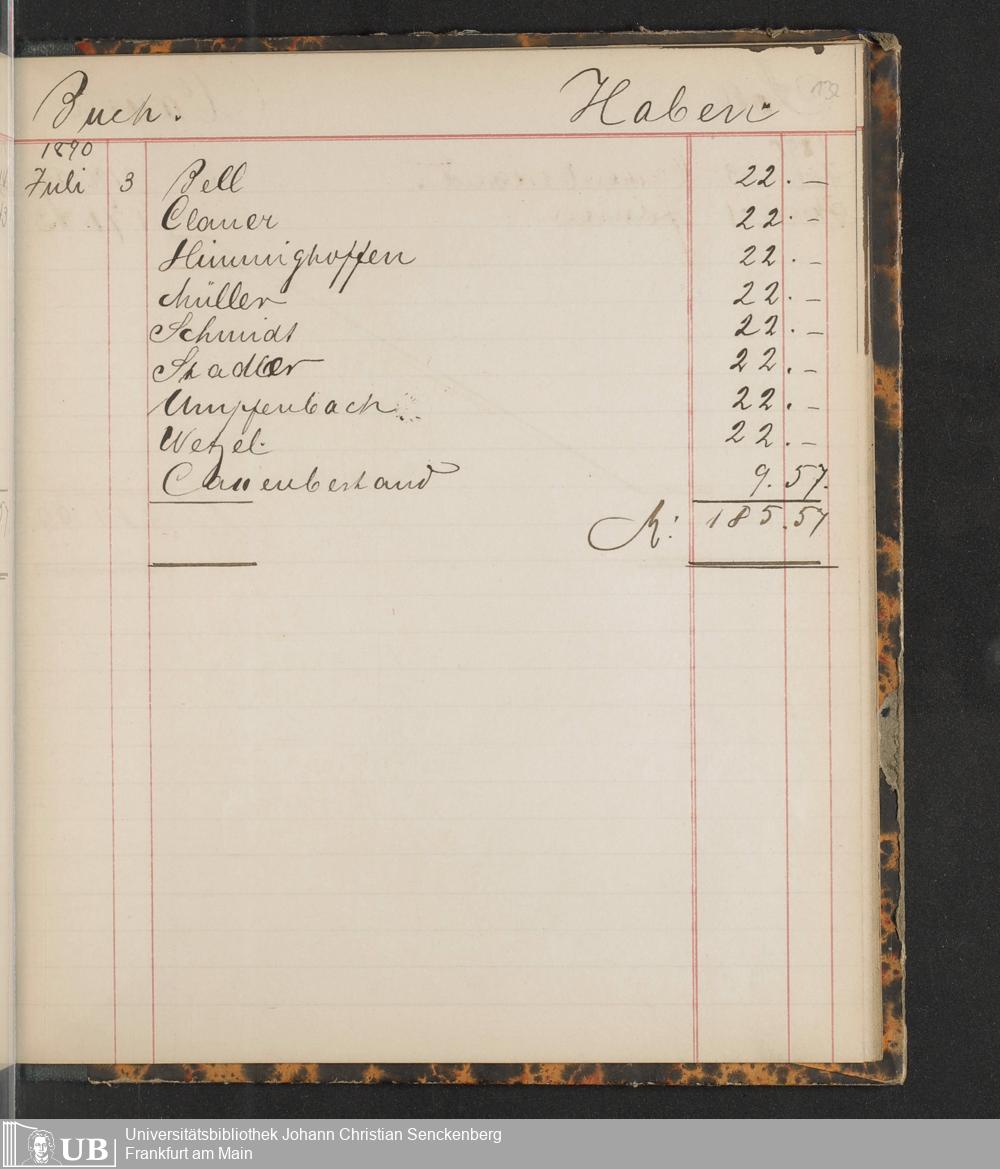 Buch. Haben. 132
1890
Juli 3 Bell 22. —
Clauer 22. —
Himmighoffen 22. —
Müller 22. —
Schmidt 22. —
Stadler 22. —
Umpfenbach 22. —
Wetzel. 22. —
Cassenbestand 9. 57.
M: 185. 57
UB Universitätsbibliothek Johann Christian Senckenberg
Frankfurt am Main